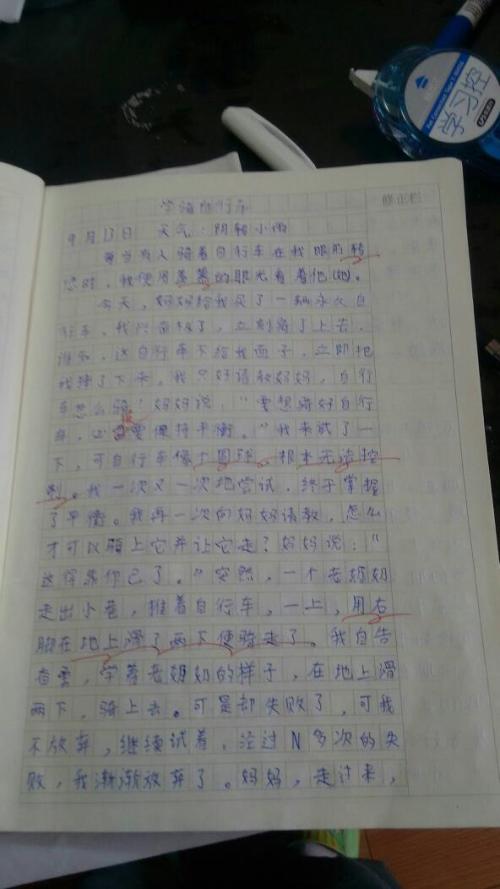 学骑自行车
修正栏
9月13日 天气：阴转小雨
每当有人骑着自行车在我眼前转
悠时，我便用羡慕的眼光看着他(她)。
今天，妈妈给我买了一辆永久自
行车，我兴奋极了，立刻骑了上去，
谁知，这自行车不给我面子，立即把
我摔了下来，我只好请教妈妈，自行
车怎么骑？妈妈说：“要想骑好自行
车，必须要保持平衡。”我来试了一
下，可自行车像个圆球，根本无法控
制。我一次又一次地尝试，终于掌握
了平衡。我再一次向妈妈请教，怎么
才可以骑上它并让它走？妈妈说：“
这得靠你己了。”突然，一个老奶奶
走出小巷，推着自行车，一上，用右
脚在地上滑了两下便骑走了。我自告
奋勇，学着老奶奶的样子，在地上滑
两下，骑上去。可是却失败了，可我
不放弃，继续试着，经过N多次的失
败，我渐渐放弃了。妈妈，走过来，
学习控